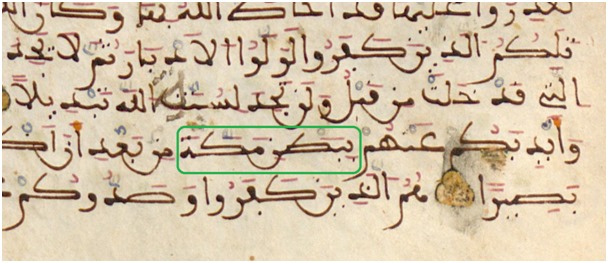 تقدروا عليها قد احاط الله بها وكان الله
قتلكم الذين كفروا لولوا الادبار ثم لا يجد
التي قد خلت من قبل ولن تجد لسنة الله تبديلا
وايديكم عنهم ببطن مكة من بعد ان اظ
بصيرا هم الذين كفروا وصدوكم